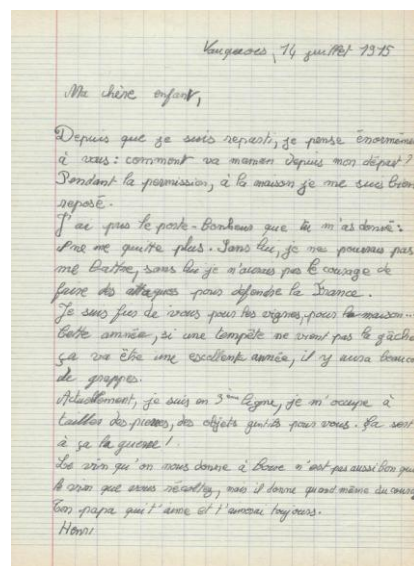 Vauquois, 14 juillet 1915
Ma chère enfant,
Depuis que je suis reparti, je pense énormémen
à vous : comment va maman depuis mon départ ?
Pendant la permission, à la maison je me suis bien
reposé.
J'ai pris le porte-bonheur que tu m'as donné :
il ne me quitte plus. Sans lui, je ne pourrais pas
me battre, sans lui je n'aurais pas le courage de
faire des attaques pour défendre la France.
Je suis fier de vous pour les vignes, pour la maison.
Cette année, si une tempête ne vient pas la gâche
ça va être une excellente année, il y aura beauco
de grappes.
Actuellement, je suis en 3ème ligne, je m'occupe à
tailler des pierres, des objets gentils pour vous. Ça sert
à ça la guerre !
Le vin qu'on nous donne à boire n'est pas aussi bon que
le vin que vous récoltez, mais il donne quand même du courag
Ton papa qui t'aime et t'aimera toujours.
Henri